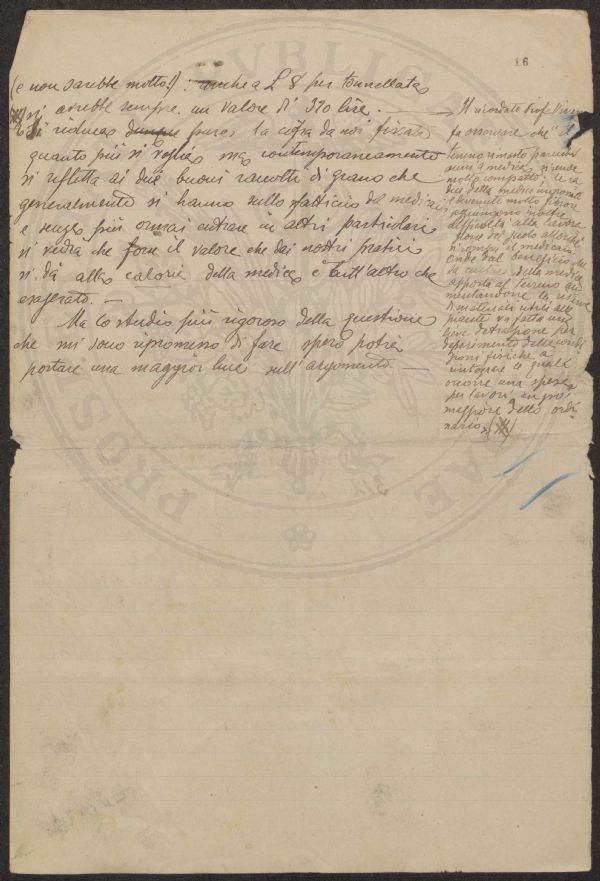 16
(e non sarebbe molto!): anche a L 8 per tonnellata
si avrebbe sempre un valore di 320 lire.
Si riduca pure la cifra da noi fissata
quanto più si voglia ma contemporaneamente
si rifletta ai due buoni raccolti di grano che
generalmente si hanno sullo sfatticcio del medicaio
e senza più ormai entrare in altri particolari
si vedrà che forse il valore che dai nostri pratici
si dà alla calorìa della medica è tutt'altro che
esagerato. —
Ma lo studio più rigoroso della questione
che mi sono ripromesso di fare spero potrà
portare una maggior luce sull'argomento —
Il ricordato Prof.
fa osservare che il
terreno rimasto parecchi
anni a medica si rende
molto compatto; le ra
dici della medica
e divenute molto grosse
aggiungono inoltre
difficoltà alla lavora
zione del suolo allorché
si rompe il medicaio
onde dal beneficio che
la cultura della medica
apporta al terreno au
mentandone la
di materiali utili alle
piante va fatta una
lieve detrazione per
deperimento delle condi
zioni fisiche a
rintegrare le quali
occorre una spesa
per lavori un po'
maggiore dello ordi
nario.
PVBLICA
PROS
DAE